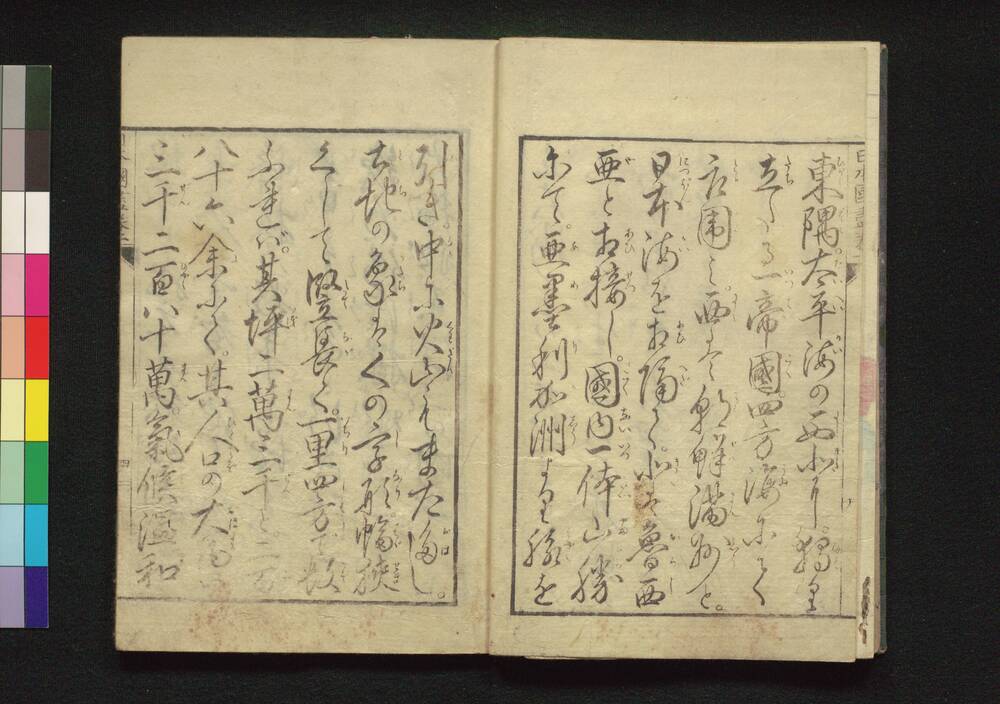 東隅太平海の西北に獨里
立たる一帝國四方海にて
古囲之西は朝鮮満州と
日本海を相隔て北は魯西
亜と相接し國内一体山勝
にて亜墨利加洲より
中に火山もまた
土地の象はくの字形幅狭
くして竪長く一里四方で数
ふればその坪二萬三千と二百
八十六余にて其人口の大
三千二百八十萬氣候温和